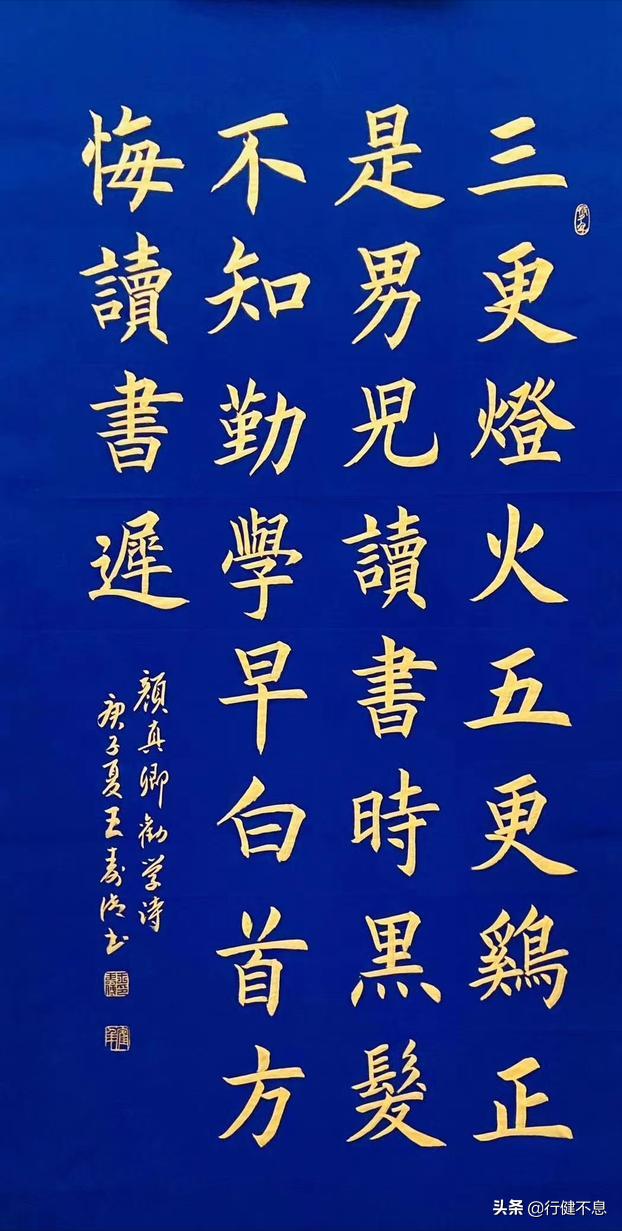 三更燈火五更鷄正
是男児讀書時黒髮
不知勤學早白首方
悔讀書遲
顔真卿勸学诗
庚子夏王寿
头条 @行健不息